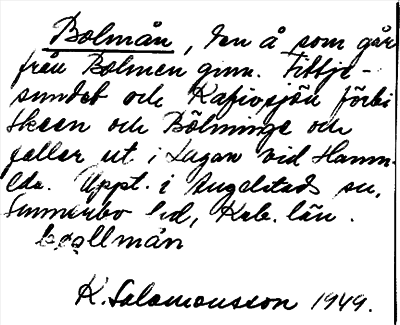 Bolmån, den å som går
från Bolmen gnm. Tittje-
sundet och Kafiosjön förbi
Skeen och Bölminge och
faller ut i Lagan vid Hamn-
eda. Uppt. i Angelstads sn,
Sunnerbo hd, Krb. län.
bållmån
K. Salomonsson 1949.